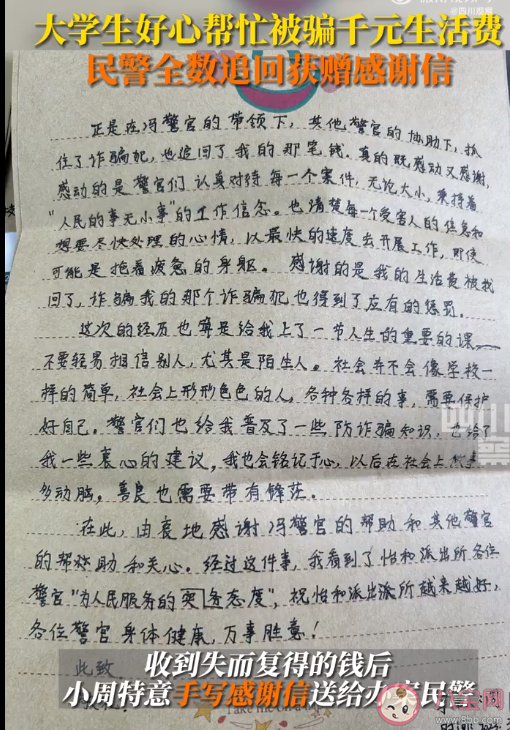 大学生好心帮忙被骗千元生活费
民警全数追回获赠感谢信
正是在冯警官的带领下,其他警官的协助下,抓
住了诈骗犯,也追回了我的那笔钱。真的既感动又感谢,
感动的是警官们认真对待每一个案件,无论大小,秉持着
"人民的事无小事"的工作信念。也清楚每一个受害人的焦急和
想要尽快处理的心情,以最快的速度去开展工作,即使
可能是拖着疲惫的身躯。感谢的是我的生活费被找
回了,诈骗我的那个诈骗犯也得到了应有的惩罚。
这次的经历也算是给我上了一节人生的重要的课——
不要轻易相信别人,尤其是陌生人。社会并不会像学校一
样的简单,社会上形形色色的人,各种各样的事,需要保护
好自己。警官们也给我普及了一些防诈骗知识,也给了
我一些衷心的建议,我也会铭记于心,以后在社会上
多动脑。善良也需要带有锋芒。
在此,由衷地感谢冯警官的帮助和其他警官
的帮助和关心。经过这件事,我看到了怡和派出所各位
警官"为人民服务的 务态度",祝怡和派出派所越来越好,
各位警官身体健康,万事胜意!
此致
收到失而复得的钱后
小周特意手写感谢信送给办案民警
Take me
八宝网
www.8bb.com